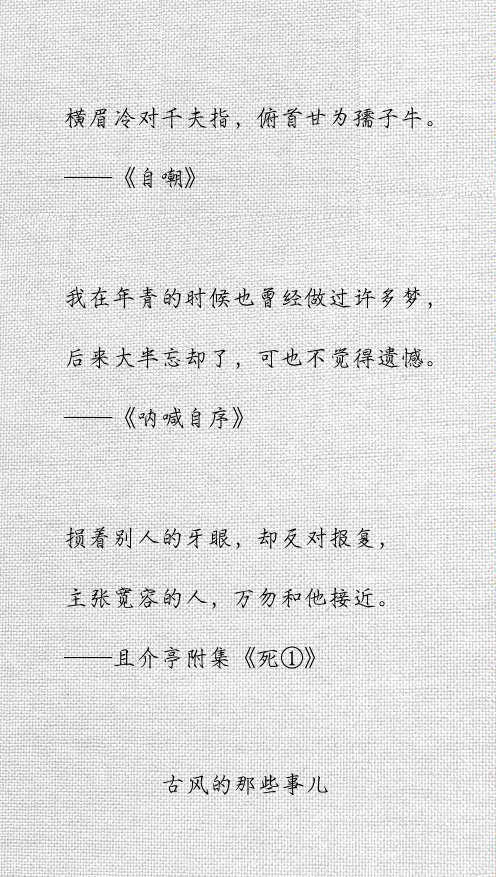 横眉冷对千夫指，俯首甘为孺子牛。
——《自嘲》
我在年青的时候也曾经做过许多梦，
后来大半忘却了，可也不觉得遗憾。
——《呐喊自序》
损着别人的牙眼，却反对报复，
主张宽容的人，万勿和他接近。
——且介亭附集《死①》
古风的那些事儿